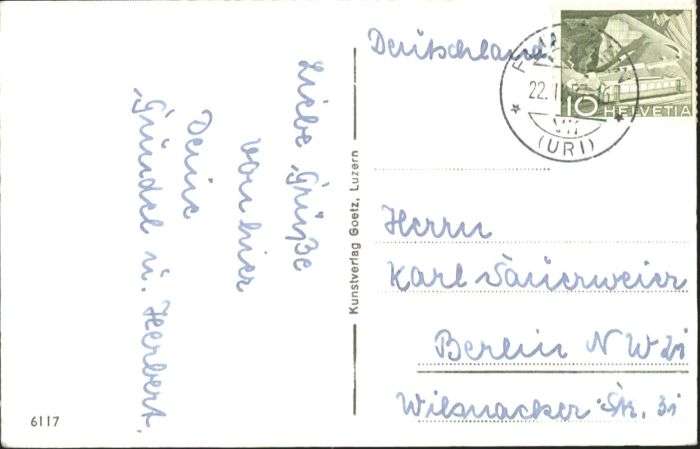 Liebe Grüße
von hier
Deine
Gründel u. Herbert.
Kunstverlag Goetz, Luzern
6117
Deutschland
22.
VII
(URI)
10 HELVETIA
Herrn
Karl Sauerweier
Berlin NW 21
Wilsnacker Str. 31